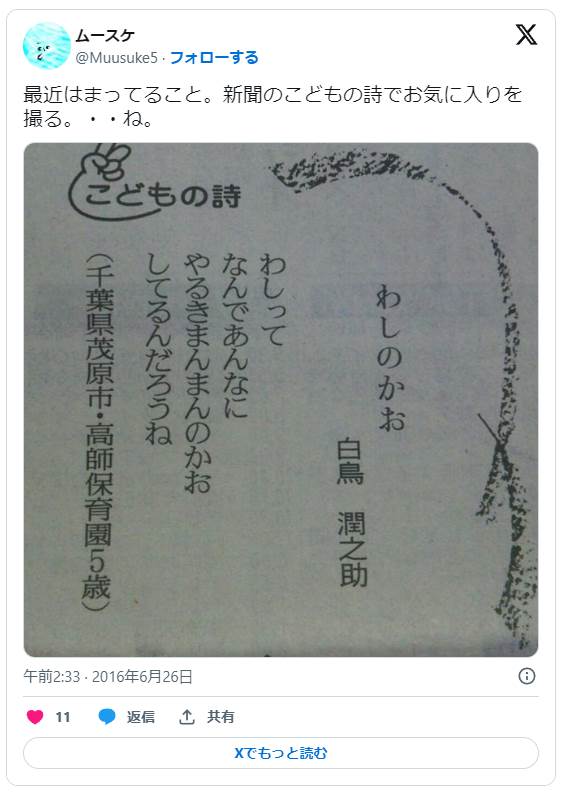 ムースケ
@Muusuke5 · フォローする
最近はまってること。新聞のこどもの詩でお気に入りを
撮る。・・ね。
こどもの詩
わしのかお
白鳥 潤之助
わしって
なんであんなに
やるきまんまんのかお
してるんだろうね
(千葉県茂原市・高師保育園5歳)
午前2:33 · 2016年6月26日
11 返信 共有
Xでもっと読む